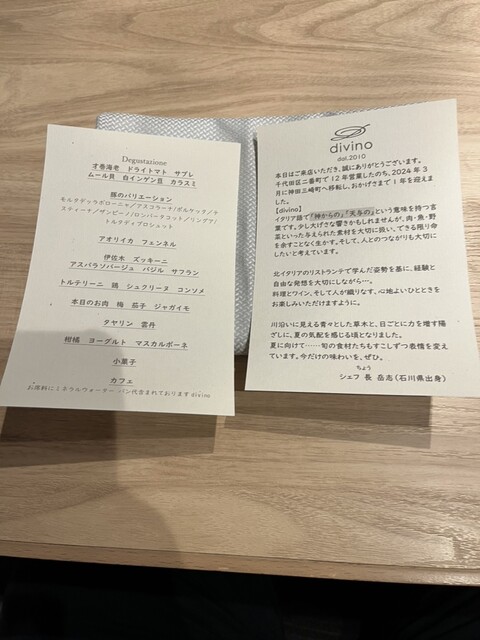 Degustazione
才巻海老 ドライトマト サブレ
ムール貝 白インゲン豆 カラスミ
豚のバリエーション
モルタデッラボローニャ/アスコラーナ/ポルケッタ/キ
スティーナ/ザンピーノ/ロンバータコット/リンデア/
トルタディプロシュット
アオリイカ フェンネル
伊佐木 ズッキーニ
アスパラソバージュ バジル サフラン
トルテリーニ 鶏 シュクリーヌ コンソメ
本日のお肉 梅 茄子 ジャガイモ
タヤリン 雲丹
柑橘 ヨーグルト マスカルポーネ
小菓子
カフェ
お席料にミネラルウォーター パン代含まれております divino
divino
dal.2010
本日はご来店いただき、誠にありがとうございます。
千代田区二番町で12年営業したのち、2024年3
月に神田三崎町へ移転し、おかげさまで1年を迎えま
した。
【divino】
イタリア語で『神からの』『天与の』という意味を持つ言
葉です。少し大げさな響きかもしれませんが、肉・魚・野
菜といった与えられた食材を大切に扱い、できる限り命
を余すことなく生かす。そして、人とのつながりも大切に
したいと考えています。
北イタリアのリストランテで学んだ姿勢を基に、経験と
自由な発想を大切にしながら…。
料理とワイン、そして人が織りなす、心地よいひとときを
お楽しみいただけますように。
川沿いに見える青々とした草木と、日ごとに力を増す陽
ざしに、夏の気配を感じる頃となりました。
夏に向けて……旬の食材たちもすこしずつ表情を変え
ています。今だけの味わいを、ぜひ。
ちょう
シェフ 長 岳志(石川県出身)